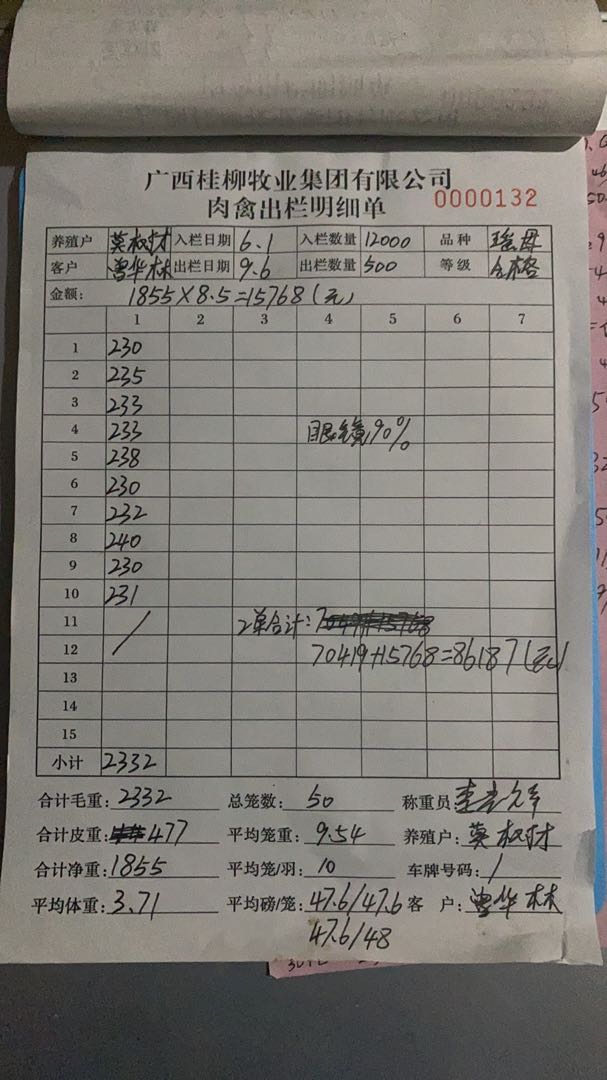 广西桂柳牧业集团有限公司
肉禽出栏明细单 0000132
养殖户 莫权材 入栏日期 6.1 入栏数量 12000 品种 瑶母
客户 曾华林 出栏日期 9.6 出栏数量 500 等级 合格
金额: 1855×8.5=15768(元)
1 2 3 4 5 6 7
1 230
2 235
3 233
4 233 眼镜90%
5 238
6 230
7 232
8 240
9 230
10 231
11 2单合计:
12 70419+15768=86187(元)
13
14
15
小计 2332
合计毛重: 2332 总笼数: 50 称重员
合计皮重: 477 平均笼重: 9.54 养殖户: 莫权材
合计净重: 1855 平均笼/羽: 10 车牌号码: /
平均体重: 3.71 平均磅/笼: 47.6/47.6 客户: 曾华林
47.6/48